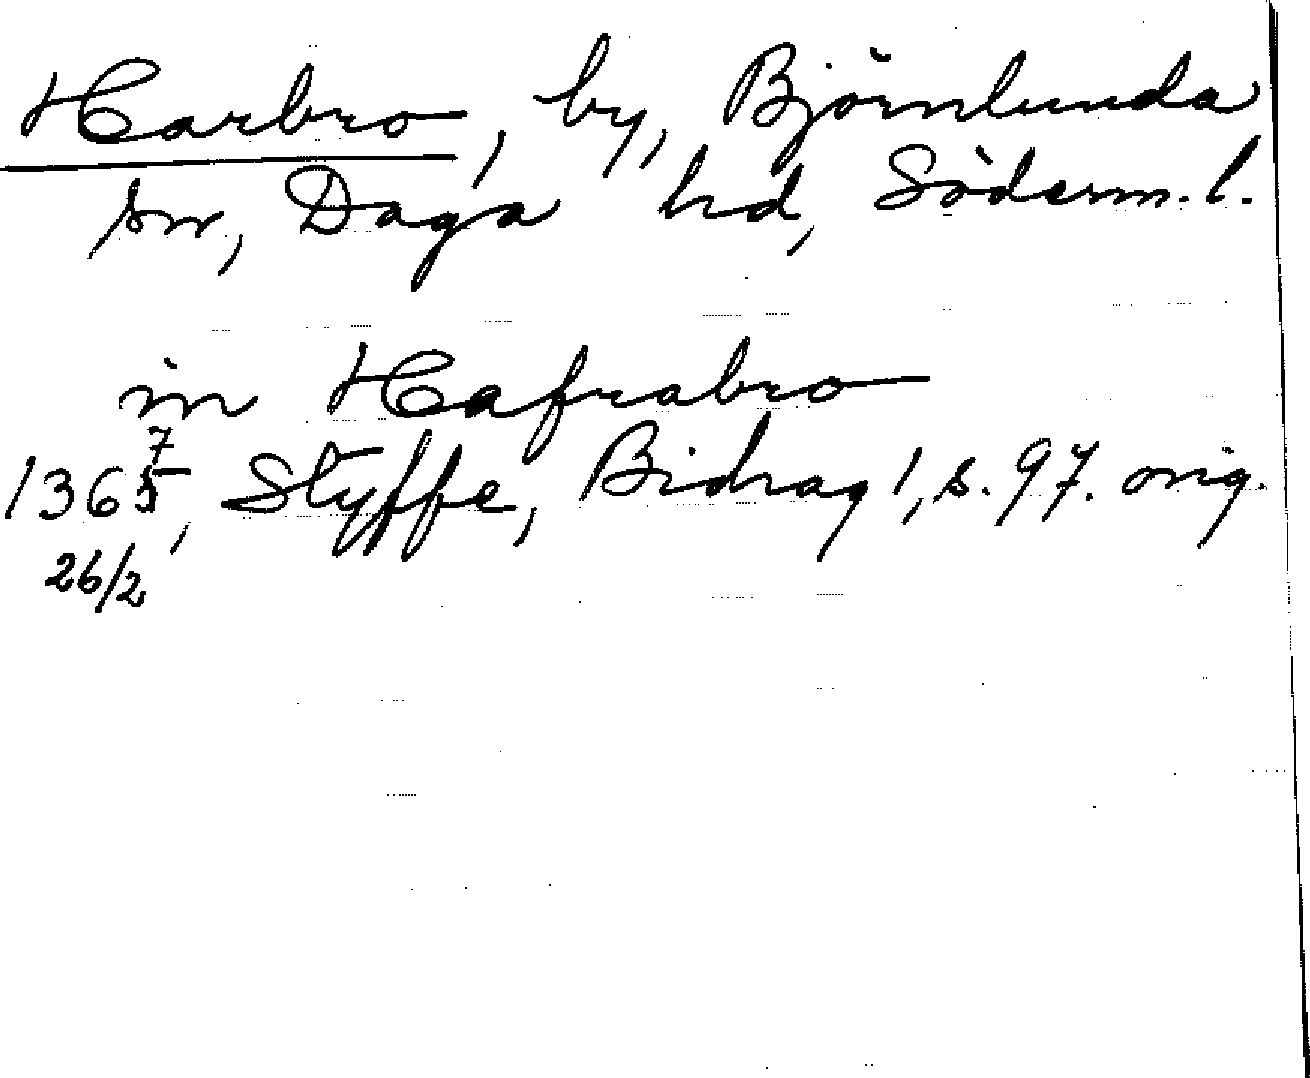 Harbro, by, Björnlunda
sn, Daga hd, Söderm. l.
in Hafrabro
7
1365, Styffe, Bidrag 1, s. 97. orig.
26/2